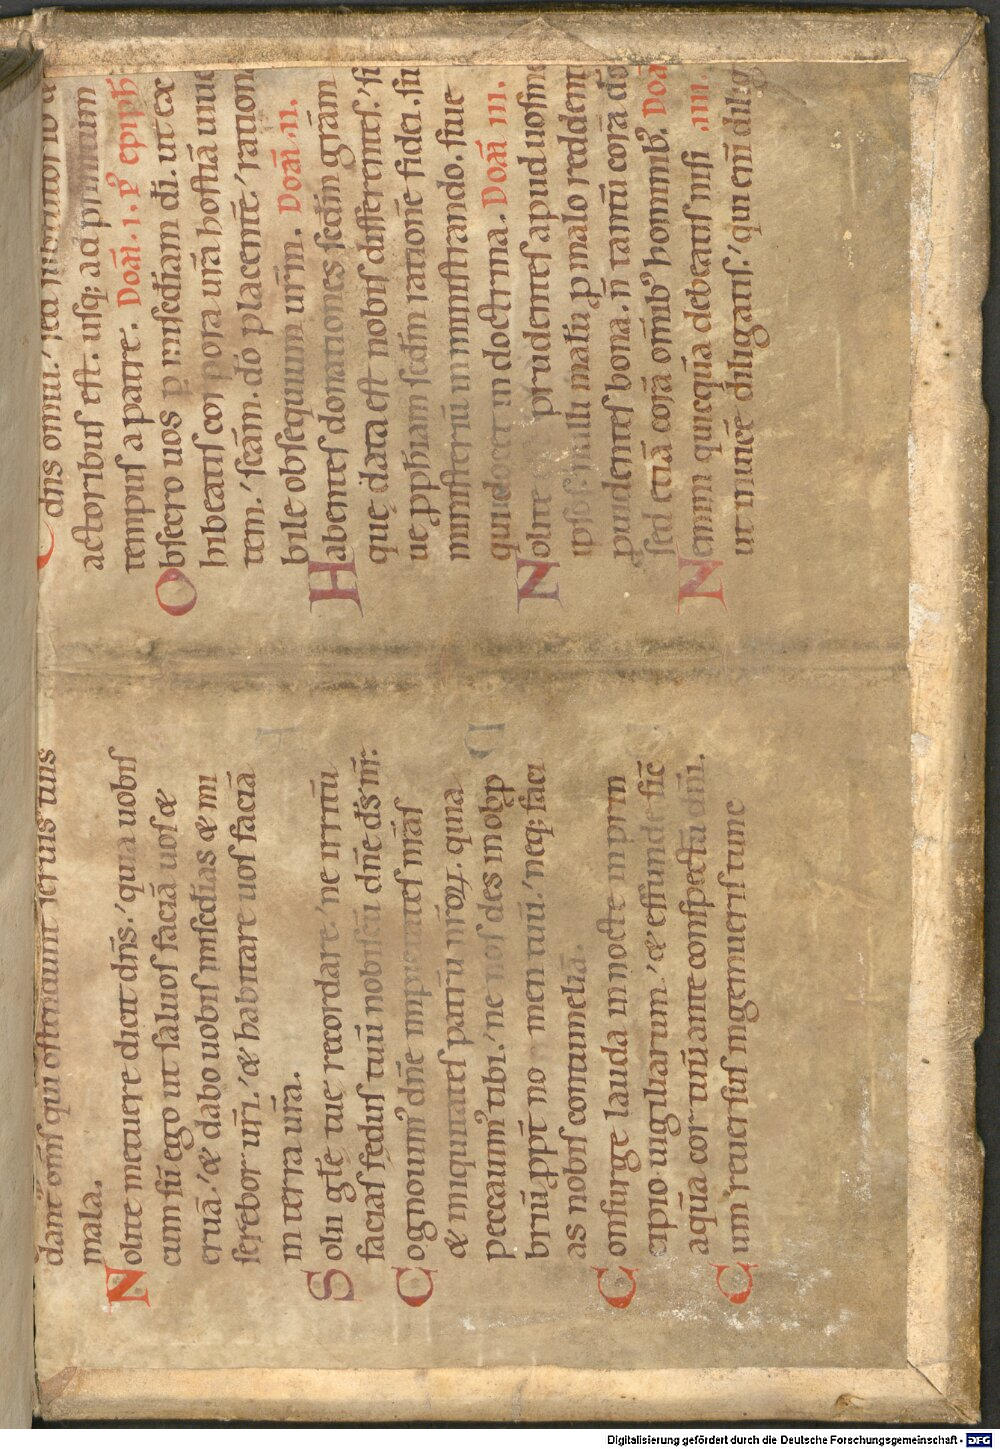 dant om̄s qui ostendunt seruis tuis
mala.
Nolite metuere dicit dn̄s. quia uobis
cum sū ego ut saluos faciā uos &
eruā. & dabo uobis misc̄dias & mi
serebor ur̄i. & habitare uos faciā
in terra ur̄a.
Soliı gl̄e tue recordare. ne irritū
facias fedus tuū nobiscū dn̄e ds̄ nr̄.
Cognouim᾽ dn̄e impietates nr̄as
& iniquitates patrū nr̄oꝝ. quia
peccauim᾽ tibi. ne nos des in obp
briū ꝓpt̄ nomen tuū. neq; faci
as nobis contumeliā.
Consurge lauda in nocte in prin
cipio uigiliarum. & effunde sic̄
aqūa cor tuū ante conspectū dn̄i.
Cum reuersus ingemueris tunc
dn̄s omiū. sed
actoribus est. usq; ad p̄finitum
tempus a patre. Dom̄. I. P᾽ epiph
Obsecro uos p misc̄diam di. ut ex
hibeatis corpora ur̄a hostiā uiue
tem. sc̄am. do placentē. ration
bile obsequium ur̄m. Dom̄. II.
Habentes donationes sc̄dm gr̄am
que data est nobis differentes. si
ue ꝓph̄iam sc̄dm rationē fidei. siue
ministeriū in ministrando. siue
qui docet in doctrina. Dom̄ III.
Nolite prudentes apud uosme
ipsos. nulli malū ꝓ malo reddent
ꝓuidentes bona. n̄ tantū corā do
sed etiā corā omīb᾽ hominib᾽. Dom̄
Nemini quicqūa debeatis nisi .IIII.
ut inuicē diligatis. qui eni dilig
Digitalisierung gefördert durch die Deutsche Forschungsgemeinschaft - DFG